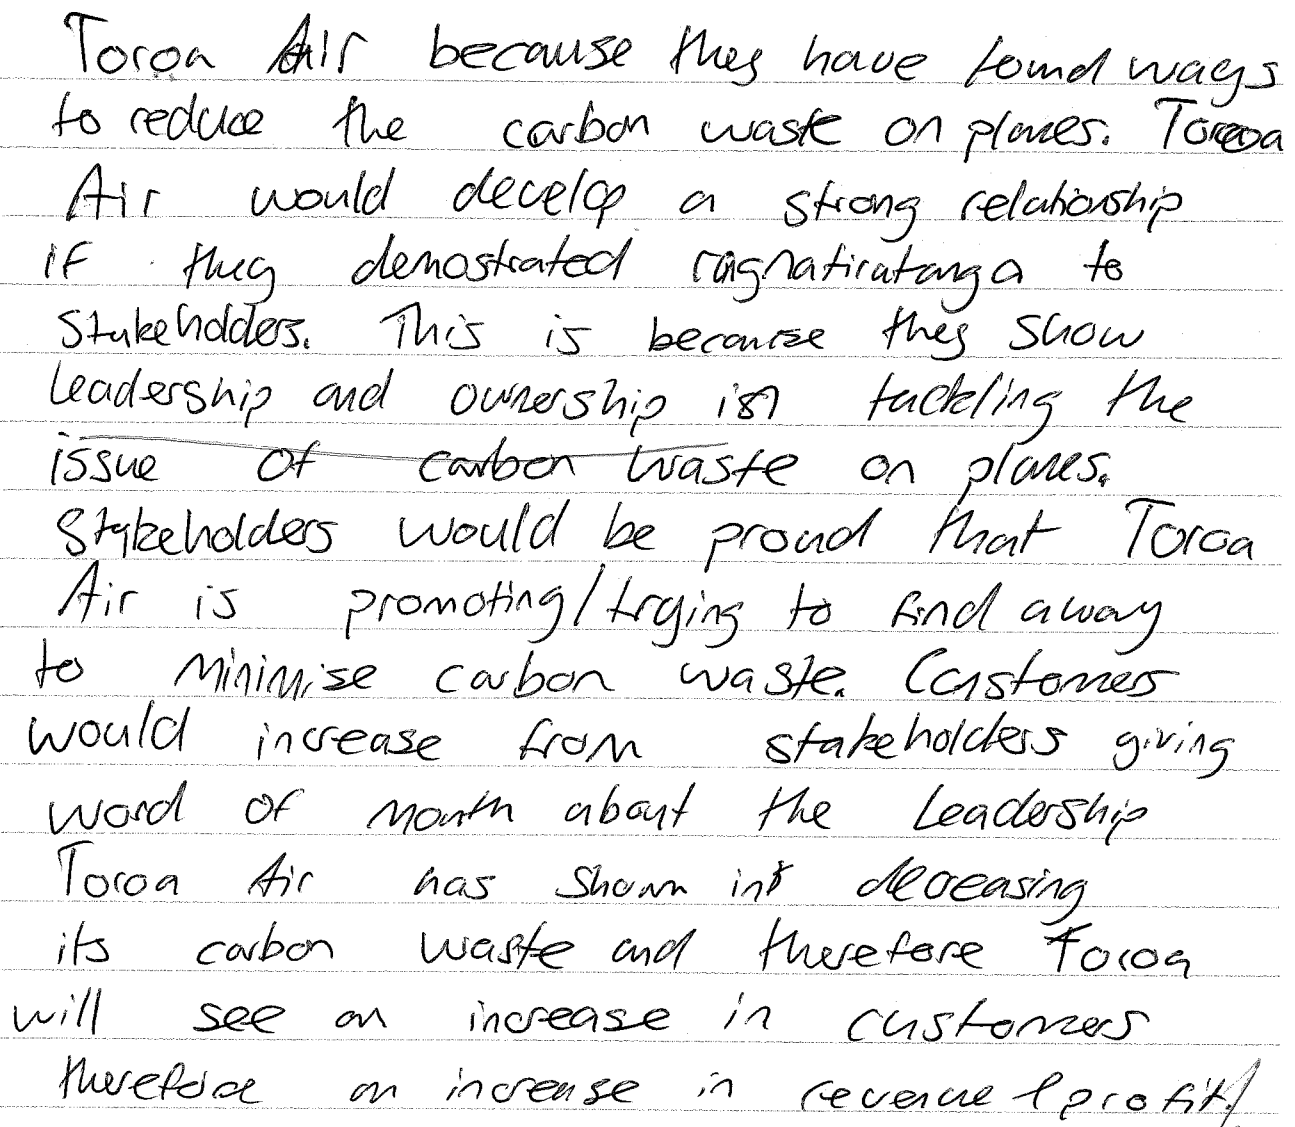 Toroa Air because they have found ways
to reduce the carbon waste on planes. Toroa
Air would develop a strong relationship
if they demostrated ragnatiratanga to
Stakeholders. This is because they show
Leadership and ownership in tackling the
issue of carbon waste on planes.
Stakeholders would be proud that Toroa
Air is promoting/trying to find a way
to minimise carbon waste. Customers
would increase from stakeholders giving
word of mouth about the Leadership
Toroa Air has shown in decreasing
its carbon waste and therefore Toroa
will see an increase in customers
therefore an increase in revenue & profit!